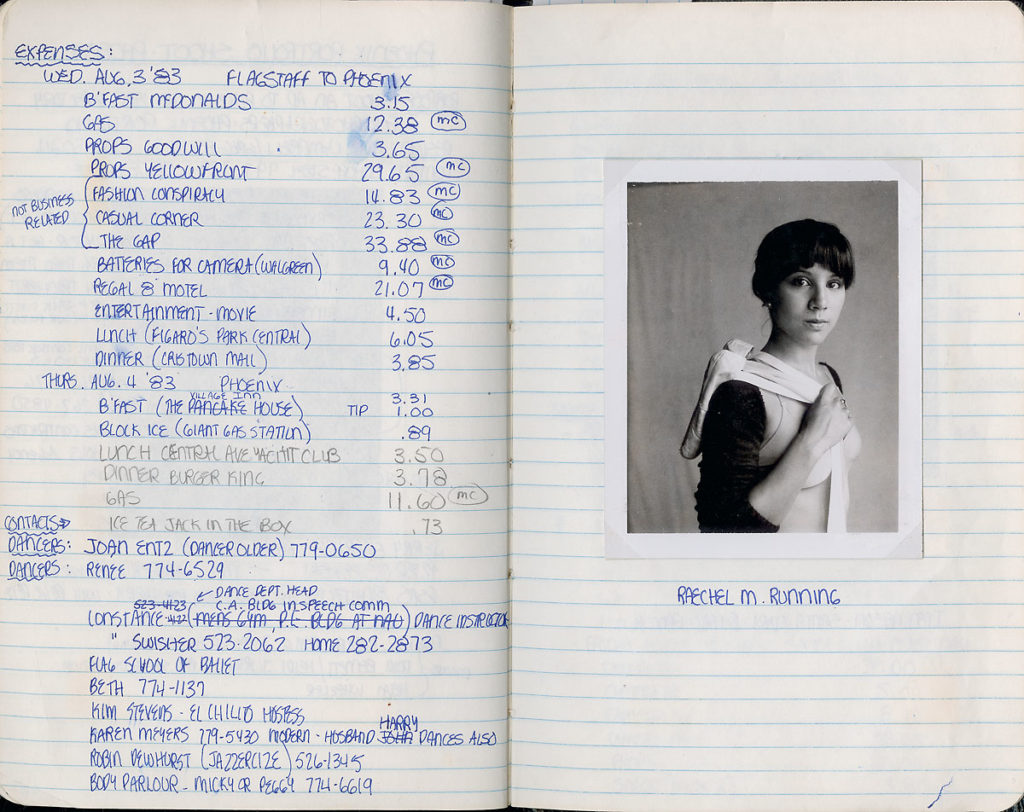 EXPENSES:
WED. AUG, 3 '83 FLAGSTAFF TO PHOENIX
B'FAST McDONALDS 3.15
GAS 12.38 MC
PROPS GOODWILL 3.65
PROPS YELLOWFRONT 29.65 MC
NOT BUSINESS RELATED
FASHION CONSPIRACY 14.83 MC
CASUAL CORNER 23.30 MC
THE GAP 33.88 MC
BATTERIES FOR CAMERA (WALGREEN) 9.40 MC
REGAL 8 MOTEL 21.07 MC
ENTERTAINMENT - MOVIE 4.50
LUNCH (FIGARO'S PARK CENTRAL) 6.05
DINNER (CRISTOWN MALL) 3.85
THURS. AUG. 4 '83 PHOENIX
VILLAGE INN 3.31
B'FAST (THE PANCAKE HOUSE) TIP 1.00
BLOCK ICE (GIANT GAS STATION) .89
LUNCH CENTRAL AVE YACHT CLUB 3.50
DINNER BURGER KING 3.78
GAS 11.60 MC
CONTACTS→ ICE TEA JACK IN THE BOX .73
DANCERS: JOAN ENTZ (DANCER OLDER) 779-0650
DANCERS: RENEE 774-6529
DANCE DEPT. HEAD
523-4123 C.A. BLDG IN SPEECH COMM
CONSTANCE 4122 (MENS GYM P.E. BLDG AT NAU) DANCE INSTRUCTOR
" SWISHER 523-2062 HOME 282-2873
FLAG SCHOOL OF BALLET
BETH 774-1137
KIM STEVENS - EL CHILITO HOSTESS
HARRY
KAREN MEYERS 779-5430 MODERN - HOSBAND JOHN DANCES ALSO
ROBIN DEWHURST (JAZZERCIZE) 526-1345
BODY PARLOUR - MICKY OR PEGGY 774-6619
RAECHEL M. RUNNING